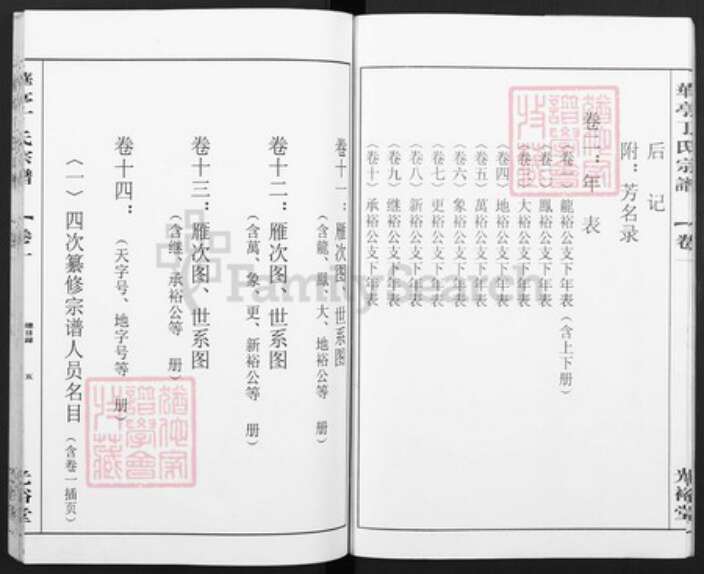 華亭丁氏宗譜
一卷
光裕堂
后记
附：芳名录
卷二：年表
（卷二）龍裕公支下年表（含上下册）
（卷三）鳳裕公支下年表
（卷三）大裕公支下年表
（卷四）地裕公支下年表
（卷五）萬裕公支下年表
（卷六）象裕公支下年表
（卷七）更裕公支下年表
（卷八）新裕公支下年表
（卷九）继裕公支下年表
（卷十）承裕公支下年表
卷十一：雁次图、世系图
（含龍、鳳、大、地裕公等 册）
卷十二：雁次图、世系图
（含萬、象、更、新裕公等 册）
卷十三：雁次图、世系图
（含继、承裕公等 册）
卷十四：
（天字号、地字号等 册）
（一）四次纂修宗谱人员名目（含卷一插页）
氏宗譜
一卷一
總目錄
五
光裕堂
FamilySearch